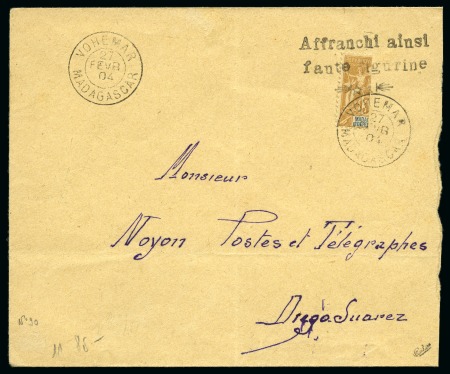 VOHEMAR
27
FEVR
04
MADAGASCAR
Affranchi ainsi
faute figurine
VOHEMAR
27
FEVR
04
MADAGASCAR
Monsieur
Noyon Postes et Télégraphes
Diégo Suarez
N° 90